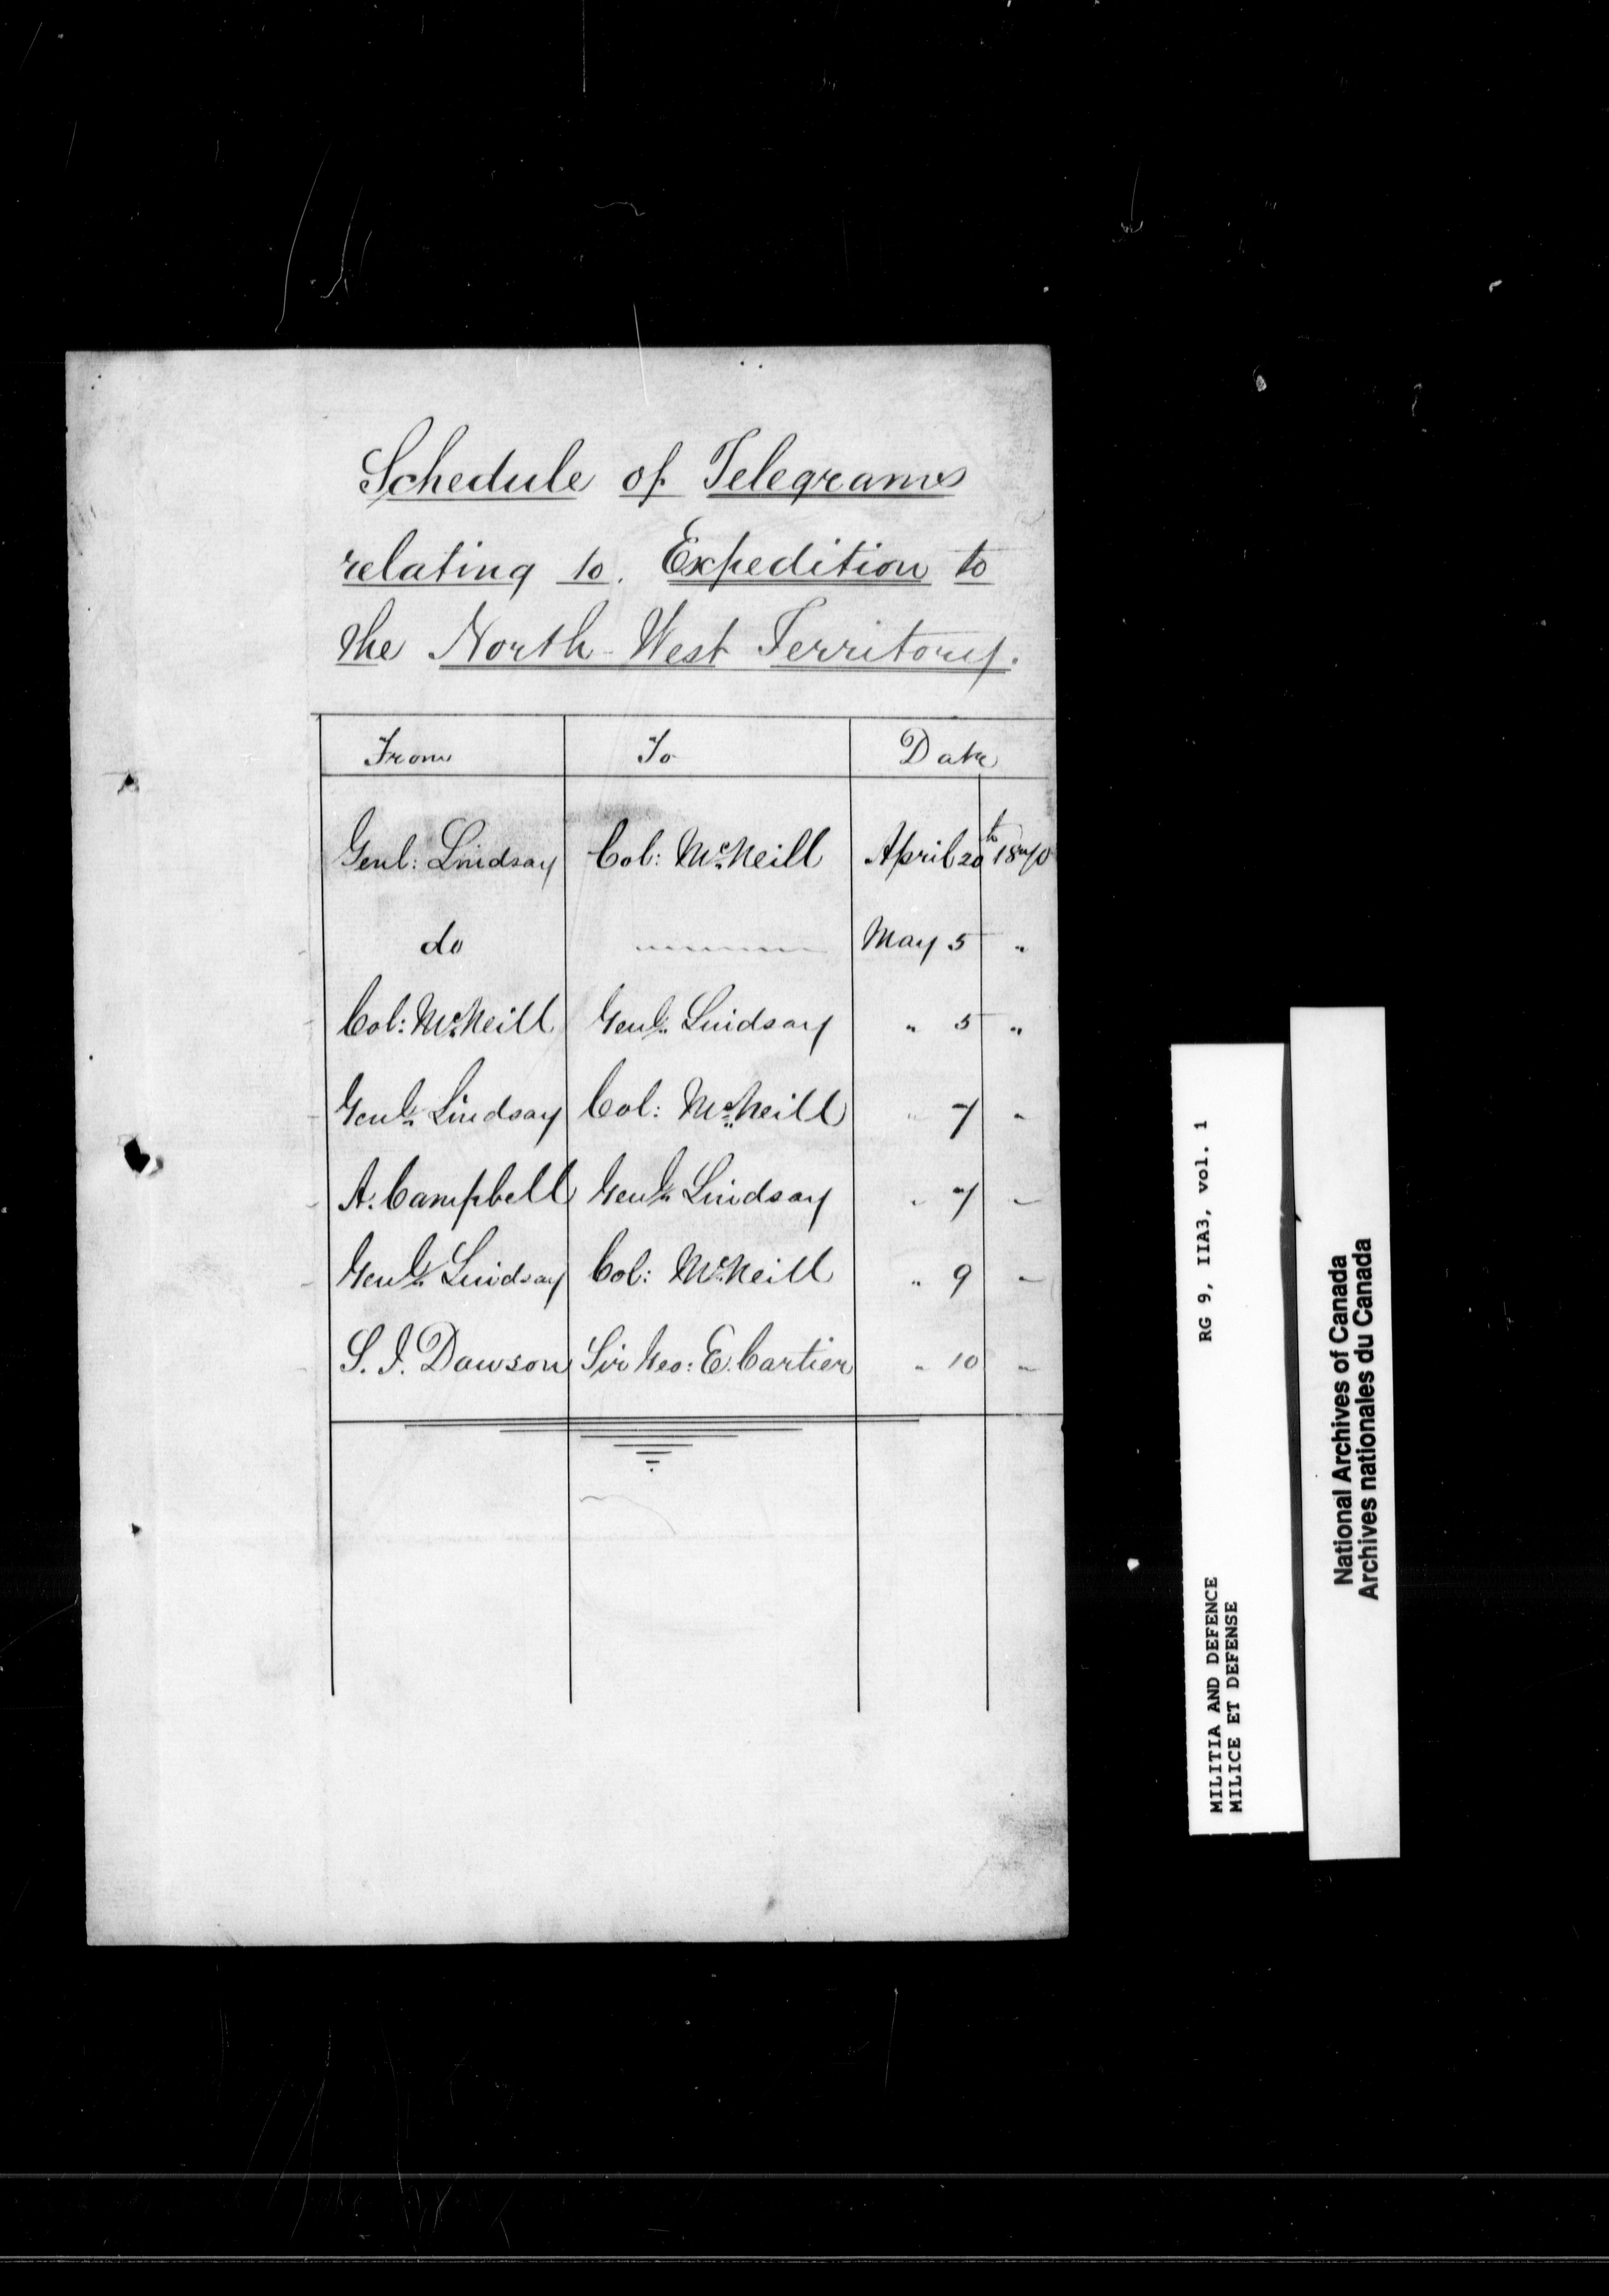 Schedule of Telegrams
relating to. Expedition to
the North-West Territory.
From To Date
Genl: Lindsay Col: McNeill April 20th 1870
do " " " " " " May 5 "
Col: McNeill Genl: Lindsay " 5 "
Genl: Lindsay Col: McNeill " 7 "
A. Campbell Genl: Lindsay " 7 "
Genl: Lindsay Col: McNeill " 9 "
S. J. Dawson Sir Geo: E. Cartier " 10 "
MILITIA AND DEFENCE RG 9, IIA3, vol. 1
MILICE ET DEFENSE
National Archives of Canada
Archives nationales du Canada